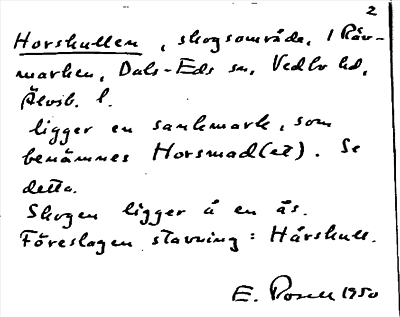 2
Horskullen, skogsområde, i Räv-
marken, Dals-Eds sn, Vedbo hd,
Älvsb. l.
ligger en sankmark, som
benämnes Horsmad(et). Se
detta.
Skogen ligger å en ås.
Föreslagen stavning: Hårskull.
E. 1950